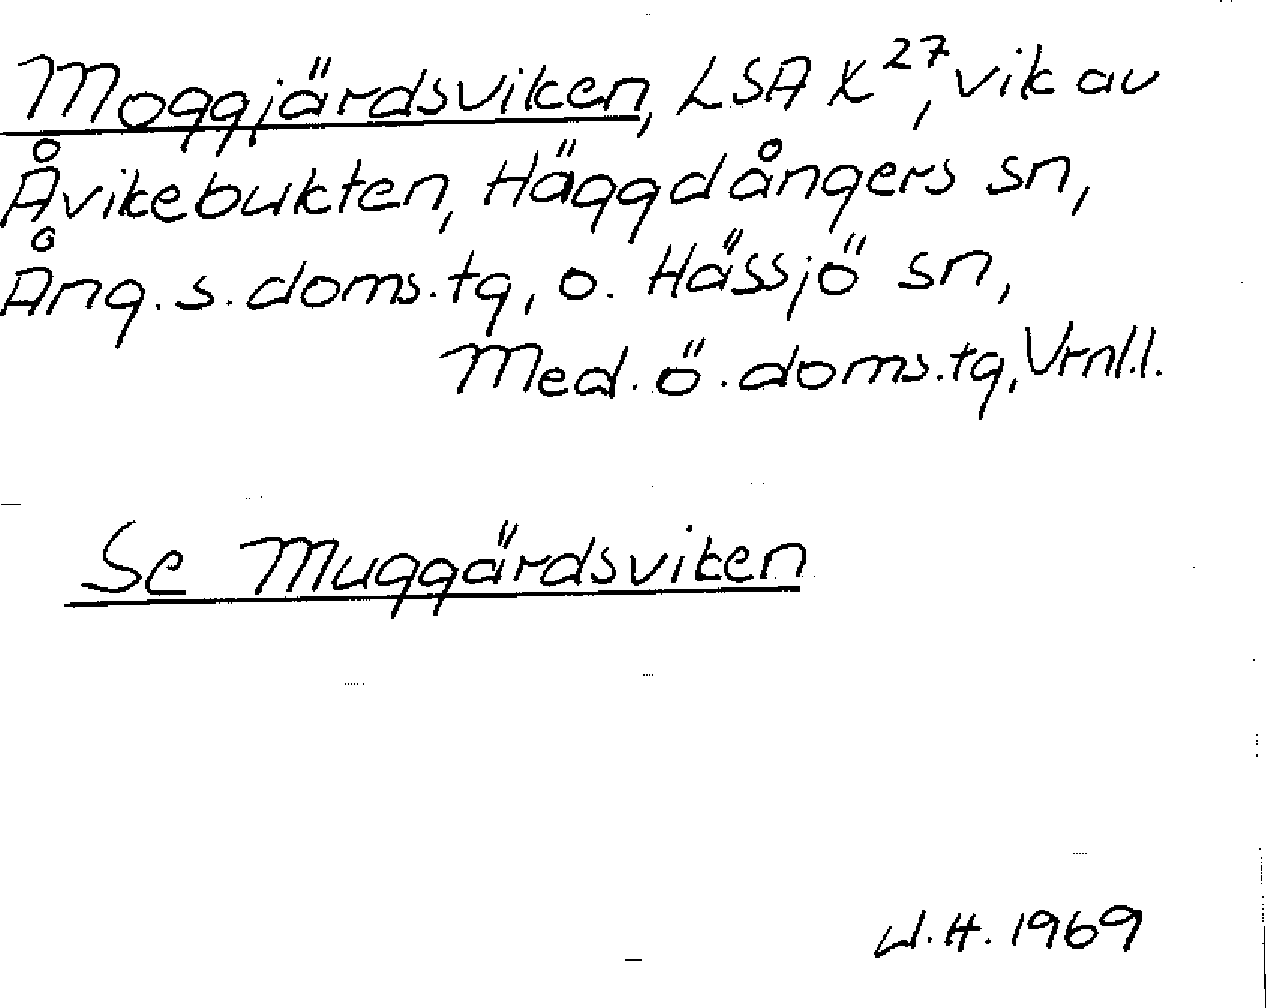 Moggjärdsviken, LSA X27, vik av
Åvikebukten, Häggdångers sn,
Ång. s. doms.tg, o. Hässjö sn,
Med. ö. doms.tg, Vrnl.l.
Se Muggärdsviken
W.H. 1969